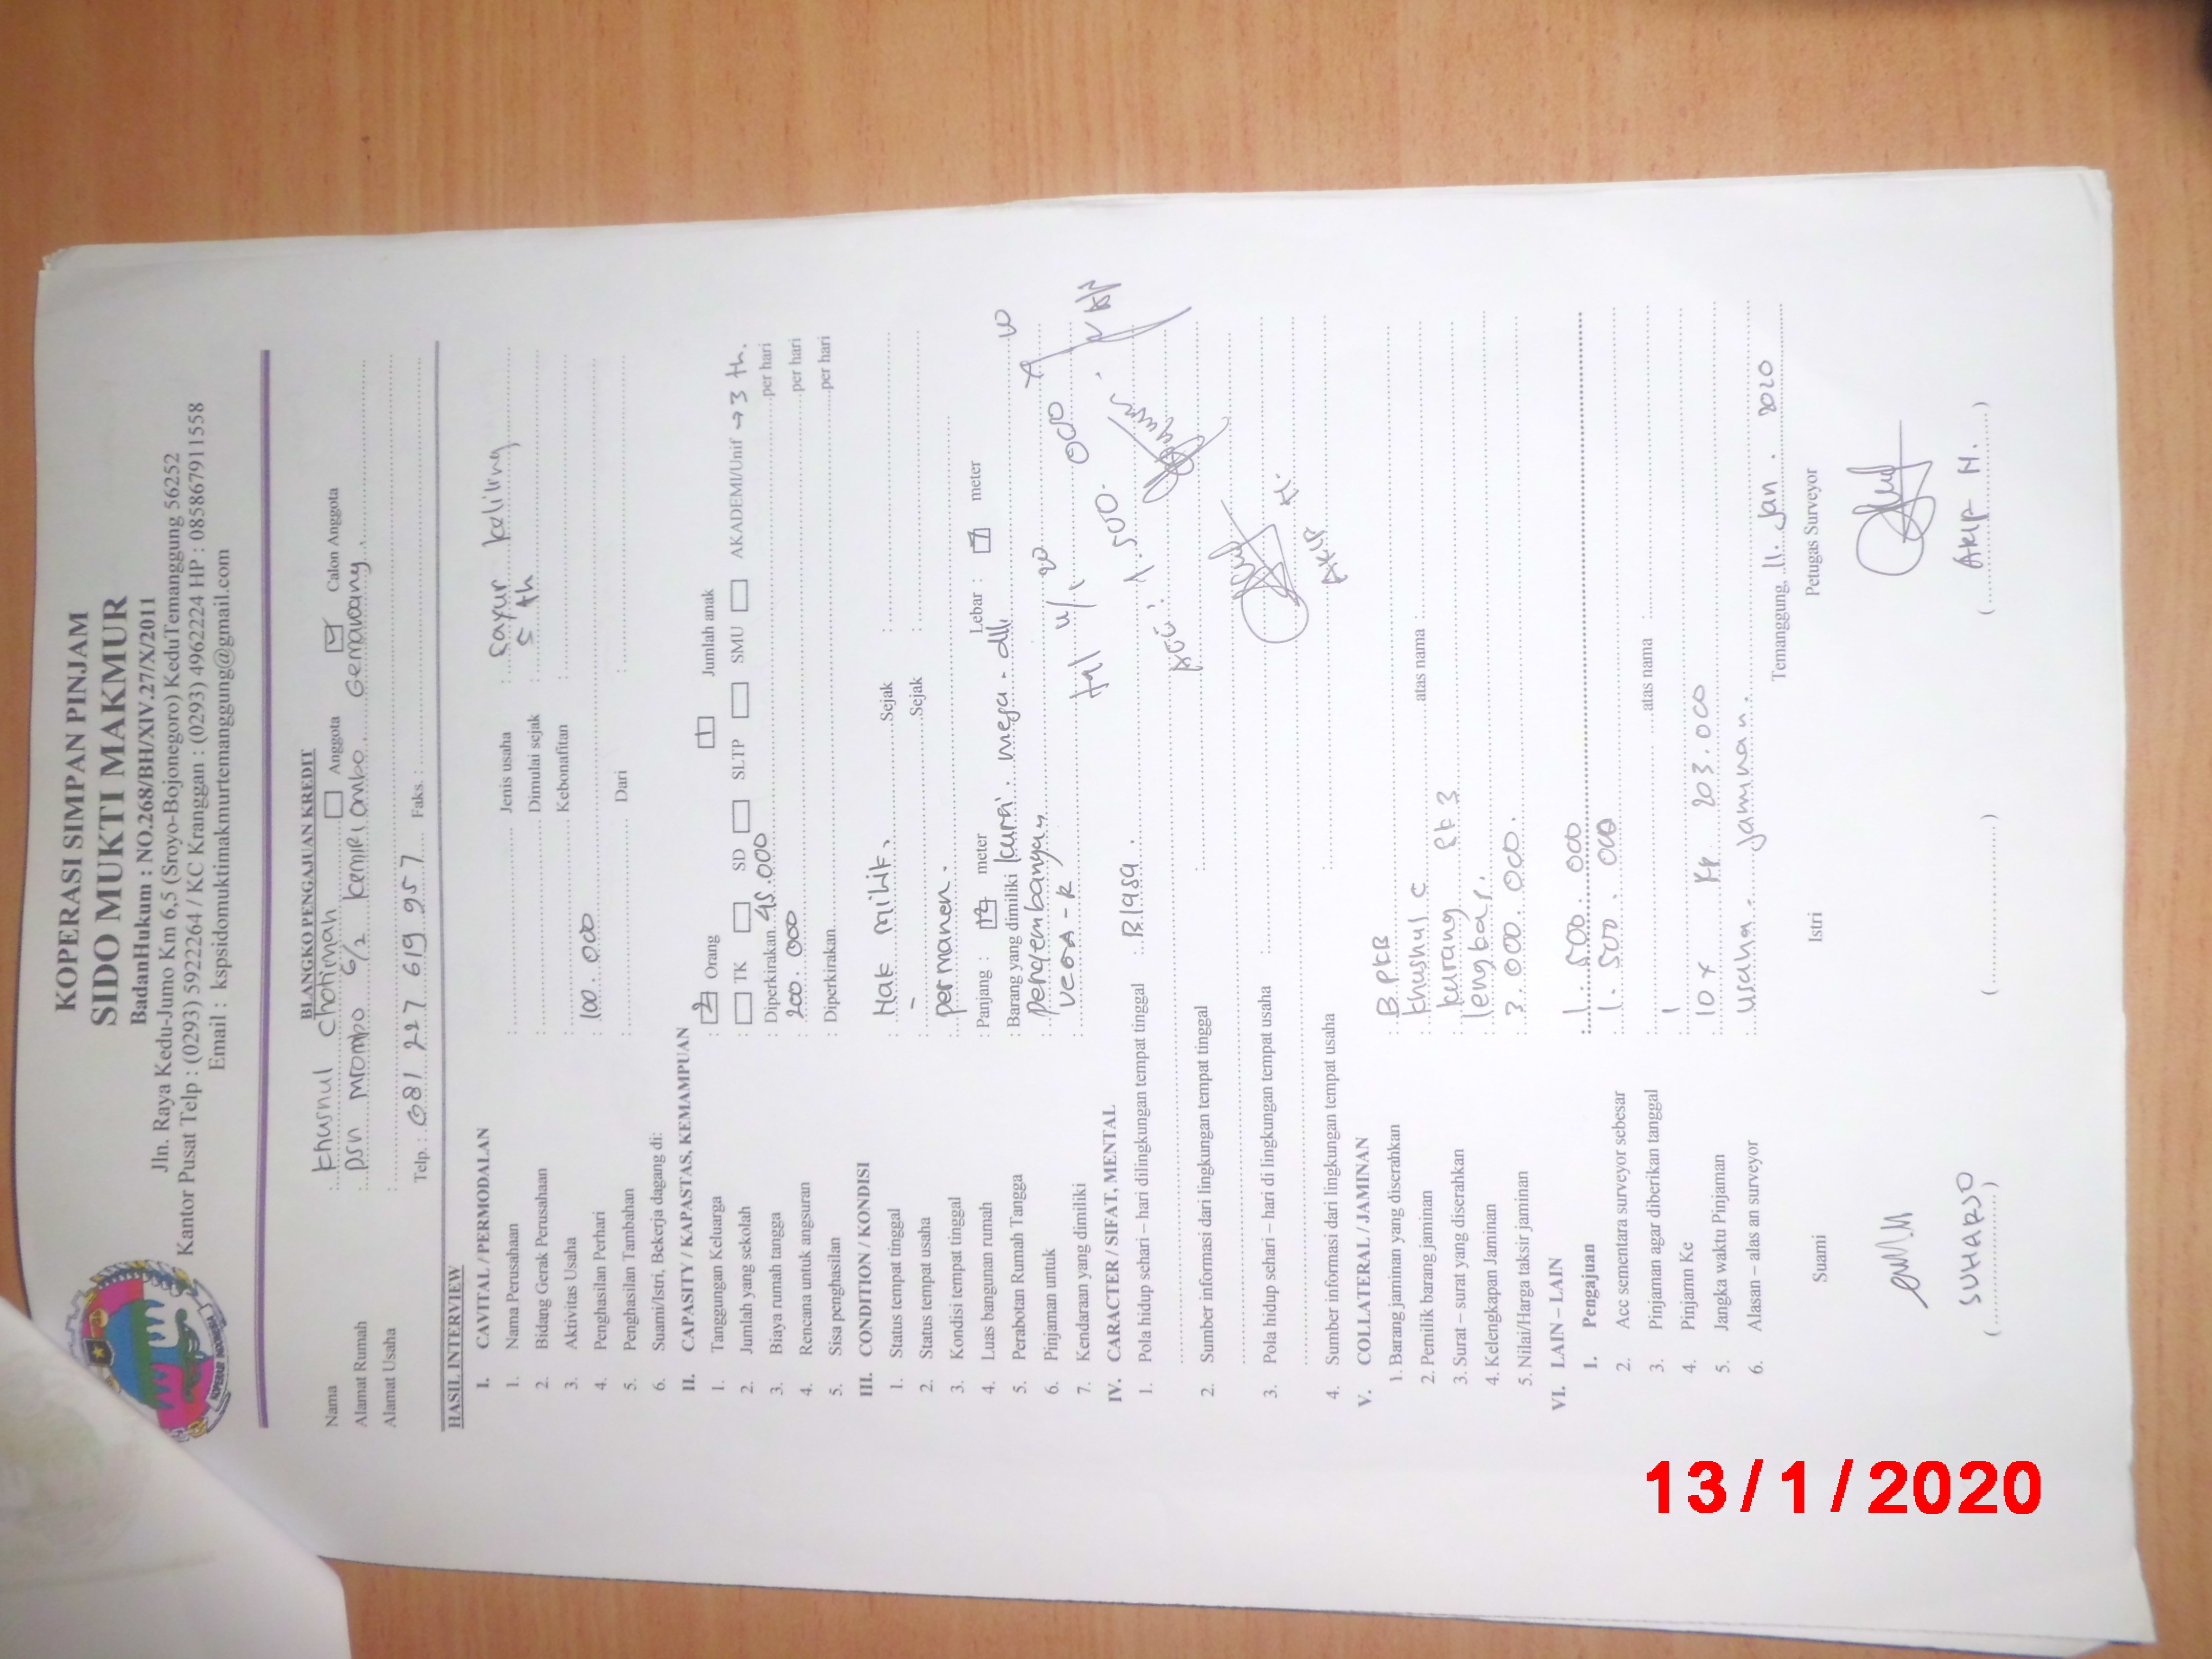 KOPERASI SIMPAN PINJAM
SIDO MUKTI MAKMUR
BadanHukum : NO.268/BH/XIV.27/X/2011
Jln. Raya Kedu-Jumo Km 6,5 (Sroyo-Bojonegoro) KeduTemanggung 56252
Kantor Pusat Telp : (0293) 5922264 / KC Kranggan : (0293) 4962224 HP : 085867911558
Email : kspsidomuktimakmurtemanggung@gmail.com
KOPERASI INDONESIA
BLANGKO PENGAJUAN KREDIT
Nama : Khusnul Chotimah Anggota Calon Anggota
Alamat Rumah : Dsn Mrombo 6/2 Kemiriombo Gemawang
Alamat Usaha :
Telp : 081 227 619 957 Faks. :
HASIL INTERVIEW
I. CAVITAL / PERMODALAN
1. Nama Perusahaan : Jenis usaha : sayur keliling
2. Bidang Gerak Perusahaan : Dimulai sejak : 5 th
3. Aktivitas Usaha : Kebonafitan :
4. Penghasilan Perhari : 100.000
5. Penghasilan Tambahan : Dari :
6. Suami/Istri, Bekerja dagang di:
II. CAPASITY / KAPASTAS, KEMAMPUAN
1. Tanggungan Keluarga : 2 Orang 1 Jumlah anak
2. Jumlah yang sekolah : TK SD SLTP SMU AKADEMI/Unif → 3 th.
3. Biaya rumah tangga : Diperkirakan 45.000 per hari
4. Rencana untuk angsuran : 200.000 per hari
5. Sisa penghasilan : Diperkirakan per hari
III. CONDITION / KONDISI
1. Status tempat tinggal : Hak milik. Sejak :
2. Status tempat usaha : - Sejak :
3. Kondisi tempat tinggal : permanen.
4. Luas bangunan rumah : Panjang : meter Lebar : 7 meter
5. Perabotan Rumah Tangga : Barang yang dimiliki kursi . meja . dll
6. Pinjaman untuk : pengembangan
7. Kendaraan yang dimiliki : Vega - R
IV. CARACTER / SIFAT, MENTAL
1. Pola hidup sehari – hari dilingkungan tempat tinggal :
1.500.000
2. Sumber informasi dari lingkungan tempat tinggal :
3. Pola hidup sehari – hari di lingkungan tempat usaha :
4. Sumber informasi dari lingkungan tempat usaha :
V. COLLATERAL / JAMINAN
1. Barang jaminan yang diserahkan : B.PKB
2. Pemilik barang jaminan : Khushul C atas nama :
3. Surat – surat yang diserahkan : kurang
4. Kelengkapan Jaminan : lengkap.
5. Nilai/Harga taksir jaminan : 3.000.000.
VI. LAIN – LAIN
1. Pengajuan : 1.500.000
2. Acc sementara surveyor sebesar : 1.500.000
3. Pinjaman agar diberikan tanggal : atas nama :
4. Pinjamn Ke : 1
5. Jangka waktu Pinjaman : 10 x Rp 203.000
6. Alasan – alas an surveyor : usaha - jaminan.
Temanggung, 11. Jan . 2020
Suami Istri Petugas Surveyor
(SUHARSO) ( ) (AKIP H.)
13/1/2020